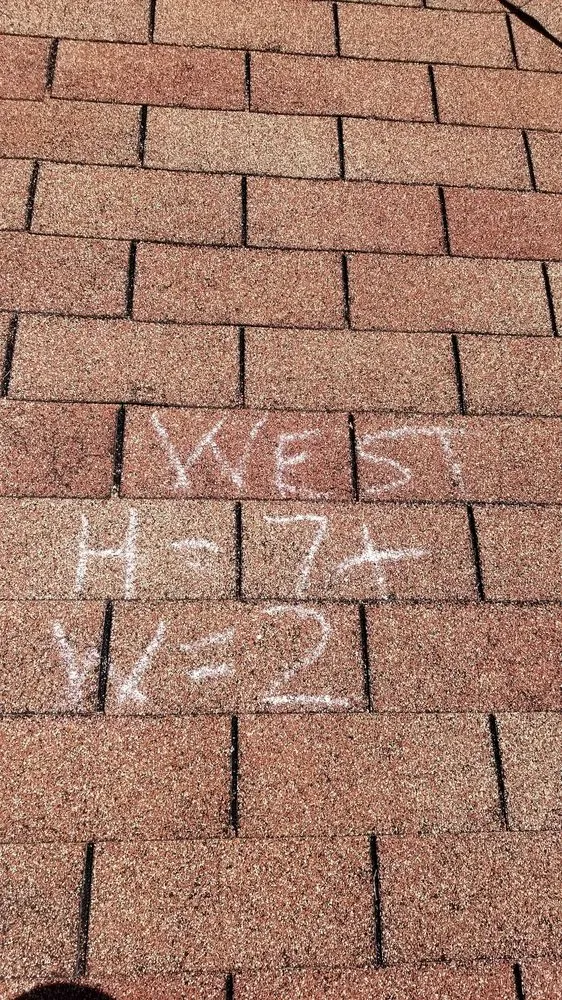 WEST
H = 7+
W = 2